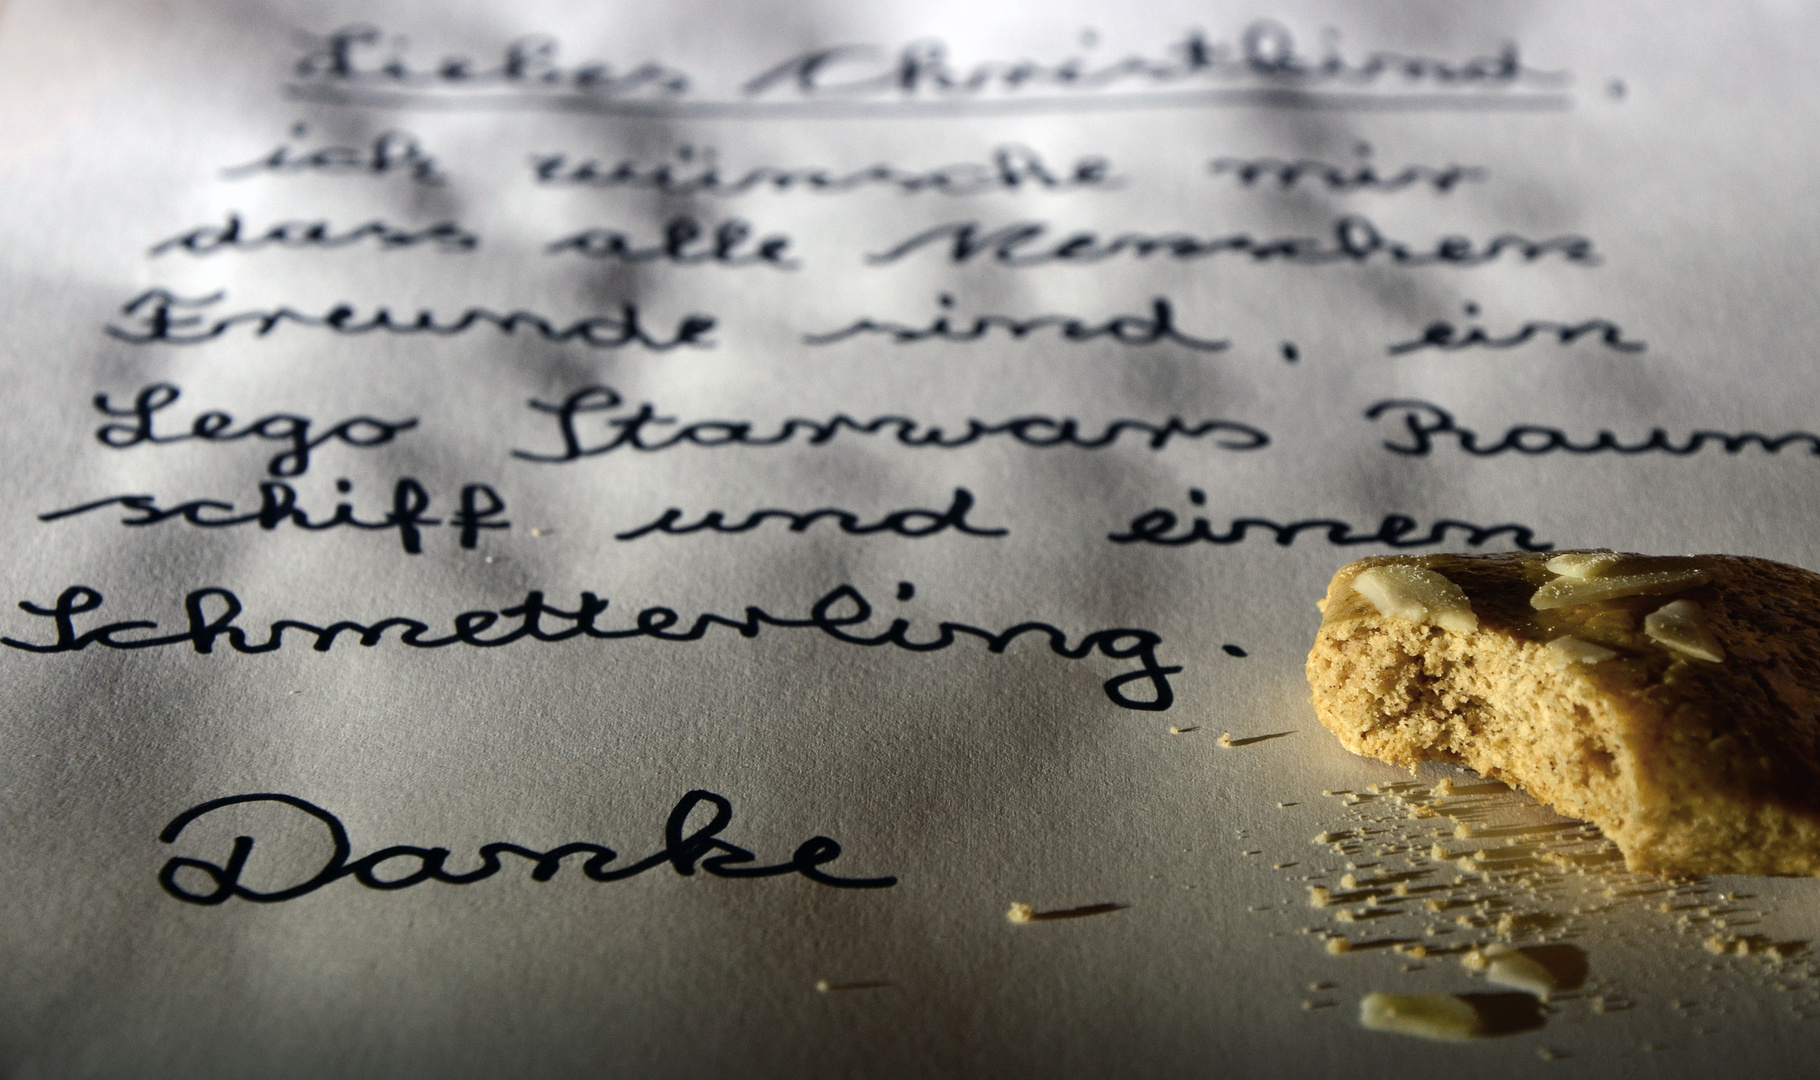 Liebes Christkind,
ich wünsche mir
dass alle Menschen
Freunde sind, ein
Lego Starwars Raum
schiff und einen
Schmetterling.
Danke